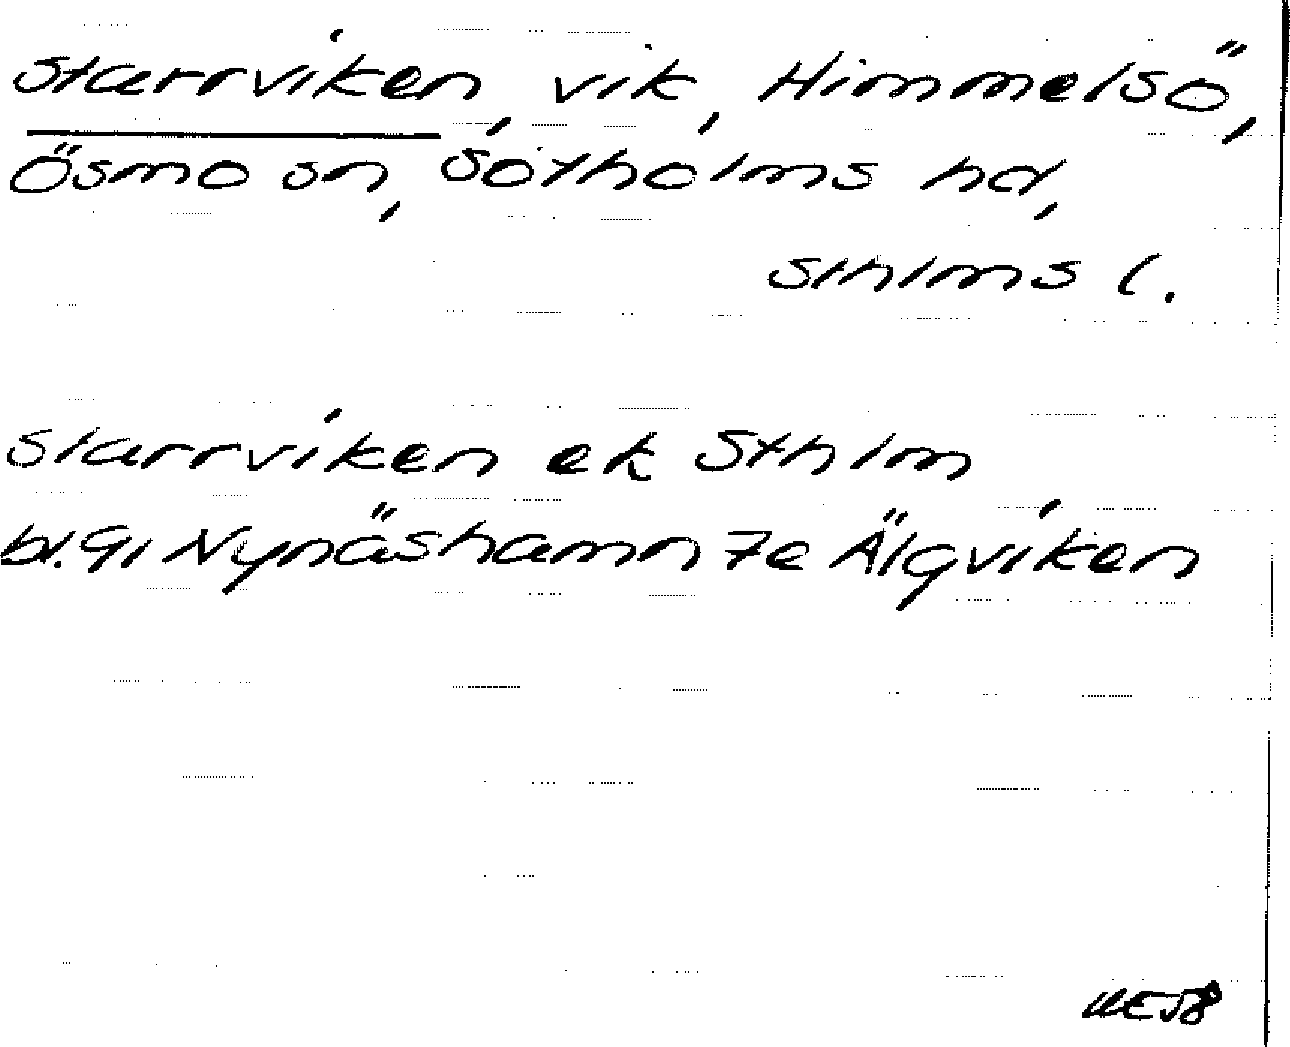 Starrviken, vik, Himmelsö,
Ösmo sn, Sotholms hd,
Sthlms l.
Starrviken ek Sthlm
bl. 91 Nynäshamn 7e Älgviken